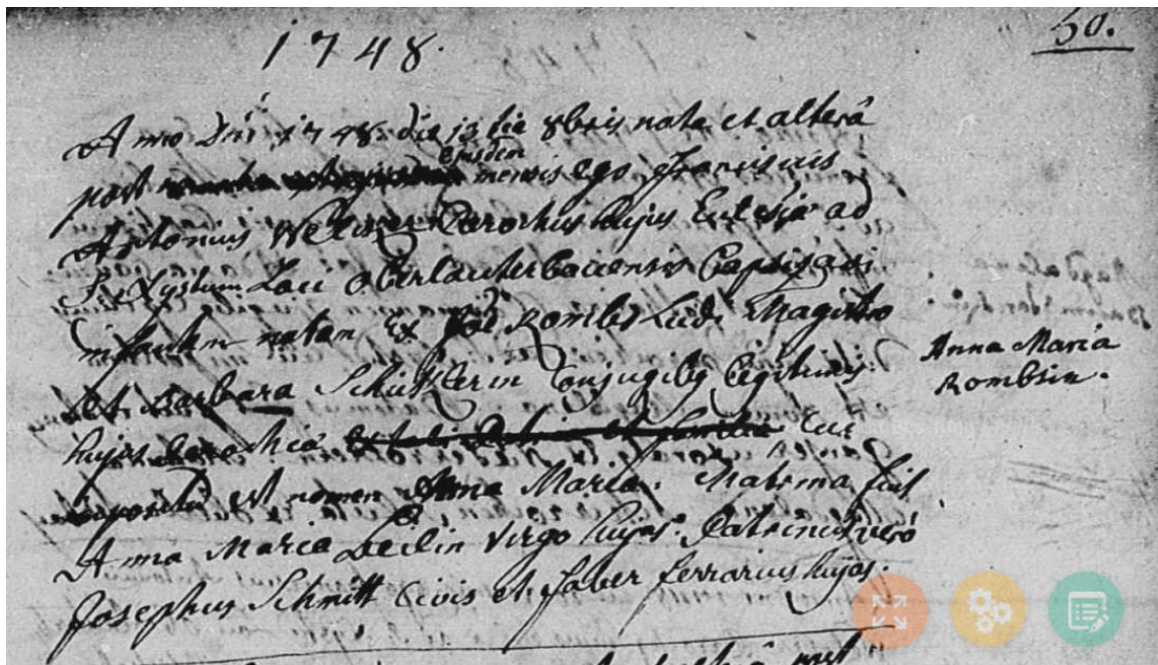 1748.
50.
Anno Dni 1748 die 13tia 8bris nata et alterâ
post ejusdem mensis ego Franciscus
Antonius Parochus hujus Eclesiæ ad
S. Xystum Loci Oberlauterbacensis baptizavi
infantem natam ex Rombs Ludi Magistro
et Barbara Conjugibus legitimis
hujus Parochiæ cui
impositum est nomen Anna Maria. Matrina fuit
Anna Maria virgo hujas. Patrinus vero
Josephus Schmitt Civis et faber ferrarius hujas.
Anna Maria
Rombsin.